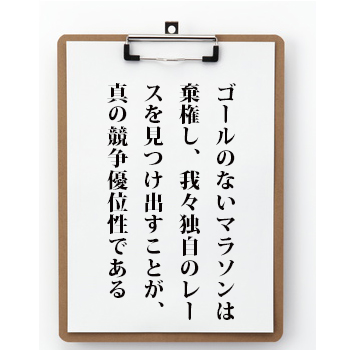 ゴールのないマラソンは
棄権し、我々独自のレー
スを見つけ出すことが、
真の競争優位性である